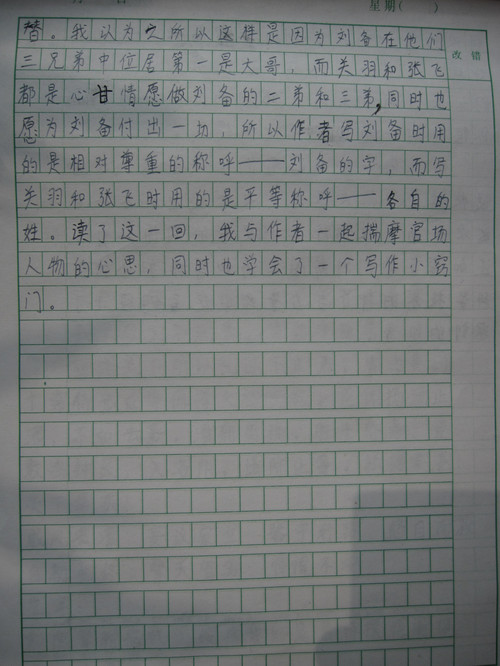 星期( )
改错
替。我认为之所以这样是因为刘备在他们
三兄弟中位居第一是大哥,而关羽和张飞
都是心甘情愿做刘备的二弟和三弟,同时也
愿为刘备付出一切,所以作者写刘备时用
的是相对尊重的称呼——刘备的字,而写
关羽和张飞时用的是平等称呼——各自的
姓。读了这一回,我与作者一起揣摩官场
人物的心思,同时也学会了一个写作小窍
门。